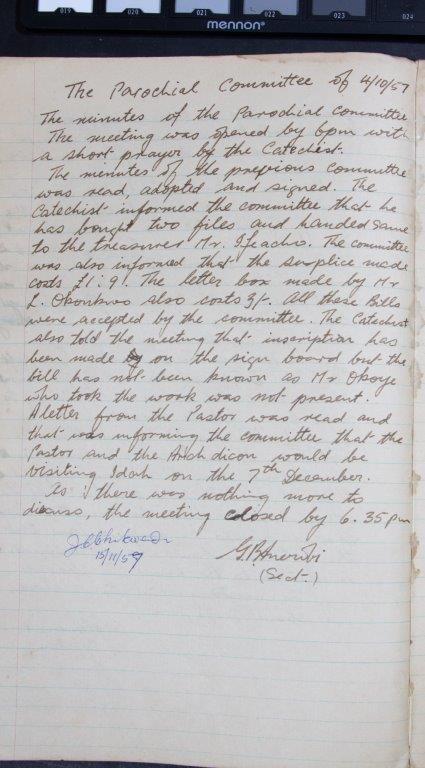 019 020 021 022 023 024
mennon
The Parochial Committee of 4/10/57
The minutes of the Parochial Committee
The meeting was opened by 6pm with
a short prayer by the Catechist.
The minutes of the previous Committee
was read, adopted and signed. The
Catechist informed the committee that he
has bought two files and handed same
to the treasurer Mr. The committee
was also informed that the surplice made
costs £1:9/. The letter box made by Mr
L. Okonkwo also costs 3/-. All these Bills
were accepted by the committee. The Catechist
also told the meeting that inscription has
been made on the sign board but the
bill has not been known as Mr Okoye
who took the work was not present.
A letter from the Pastor was read and
that was informing the committee that the
Pastor and the Archdicon would be
visiting Idah on the 7th December.
As there was nothing more to
discuss, the meeting closed by 6.35pm
15/11/57
(Sect.)